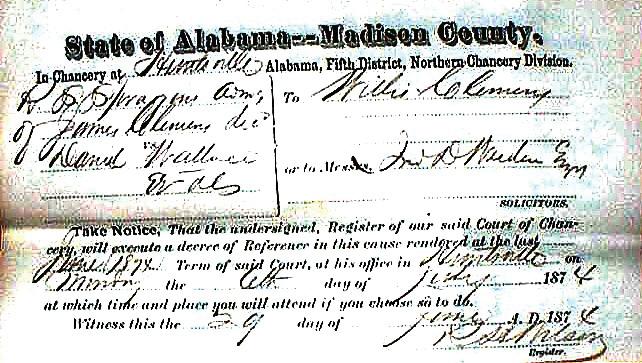 State of Alabama--Madison County.
In Chancery at Huntsville Alabama, Fifth District, Northern Chancery Division.
To Willis Clemens
James Clemens
vs
David Wallace
or to Messrs.
SOLICITORS.
Take Notice, That the undersigned, Register of our said Court of Chan-
cery, will execute a decree of Reference in this cause rendered at the last
June 1874 Term of said Court, at his office in Huntsville on
the 6th day of July 1874
at which time and place you will attend if you choose so to do.
Witness this the 29 day of June A. D. 1874
Register.